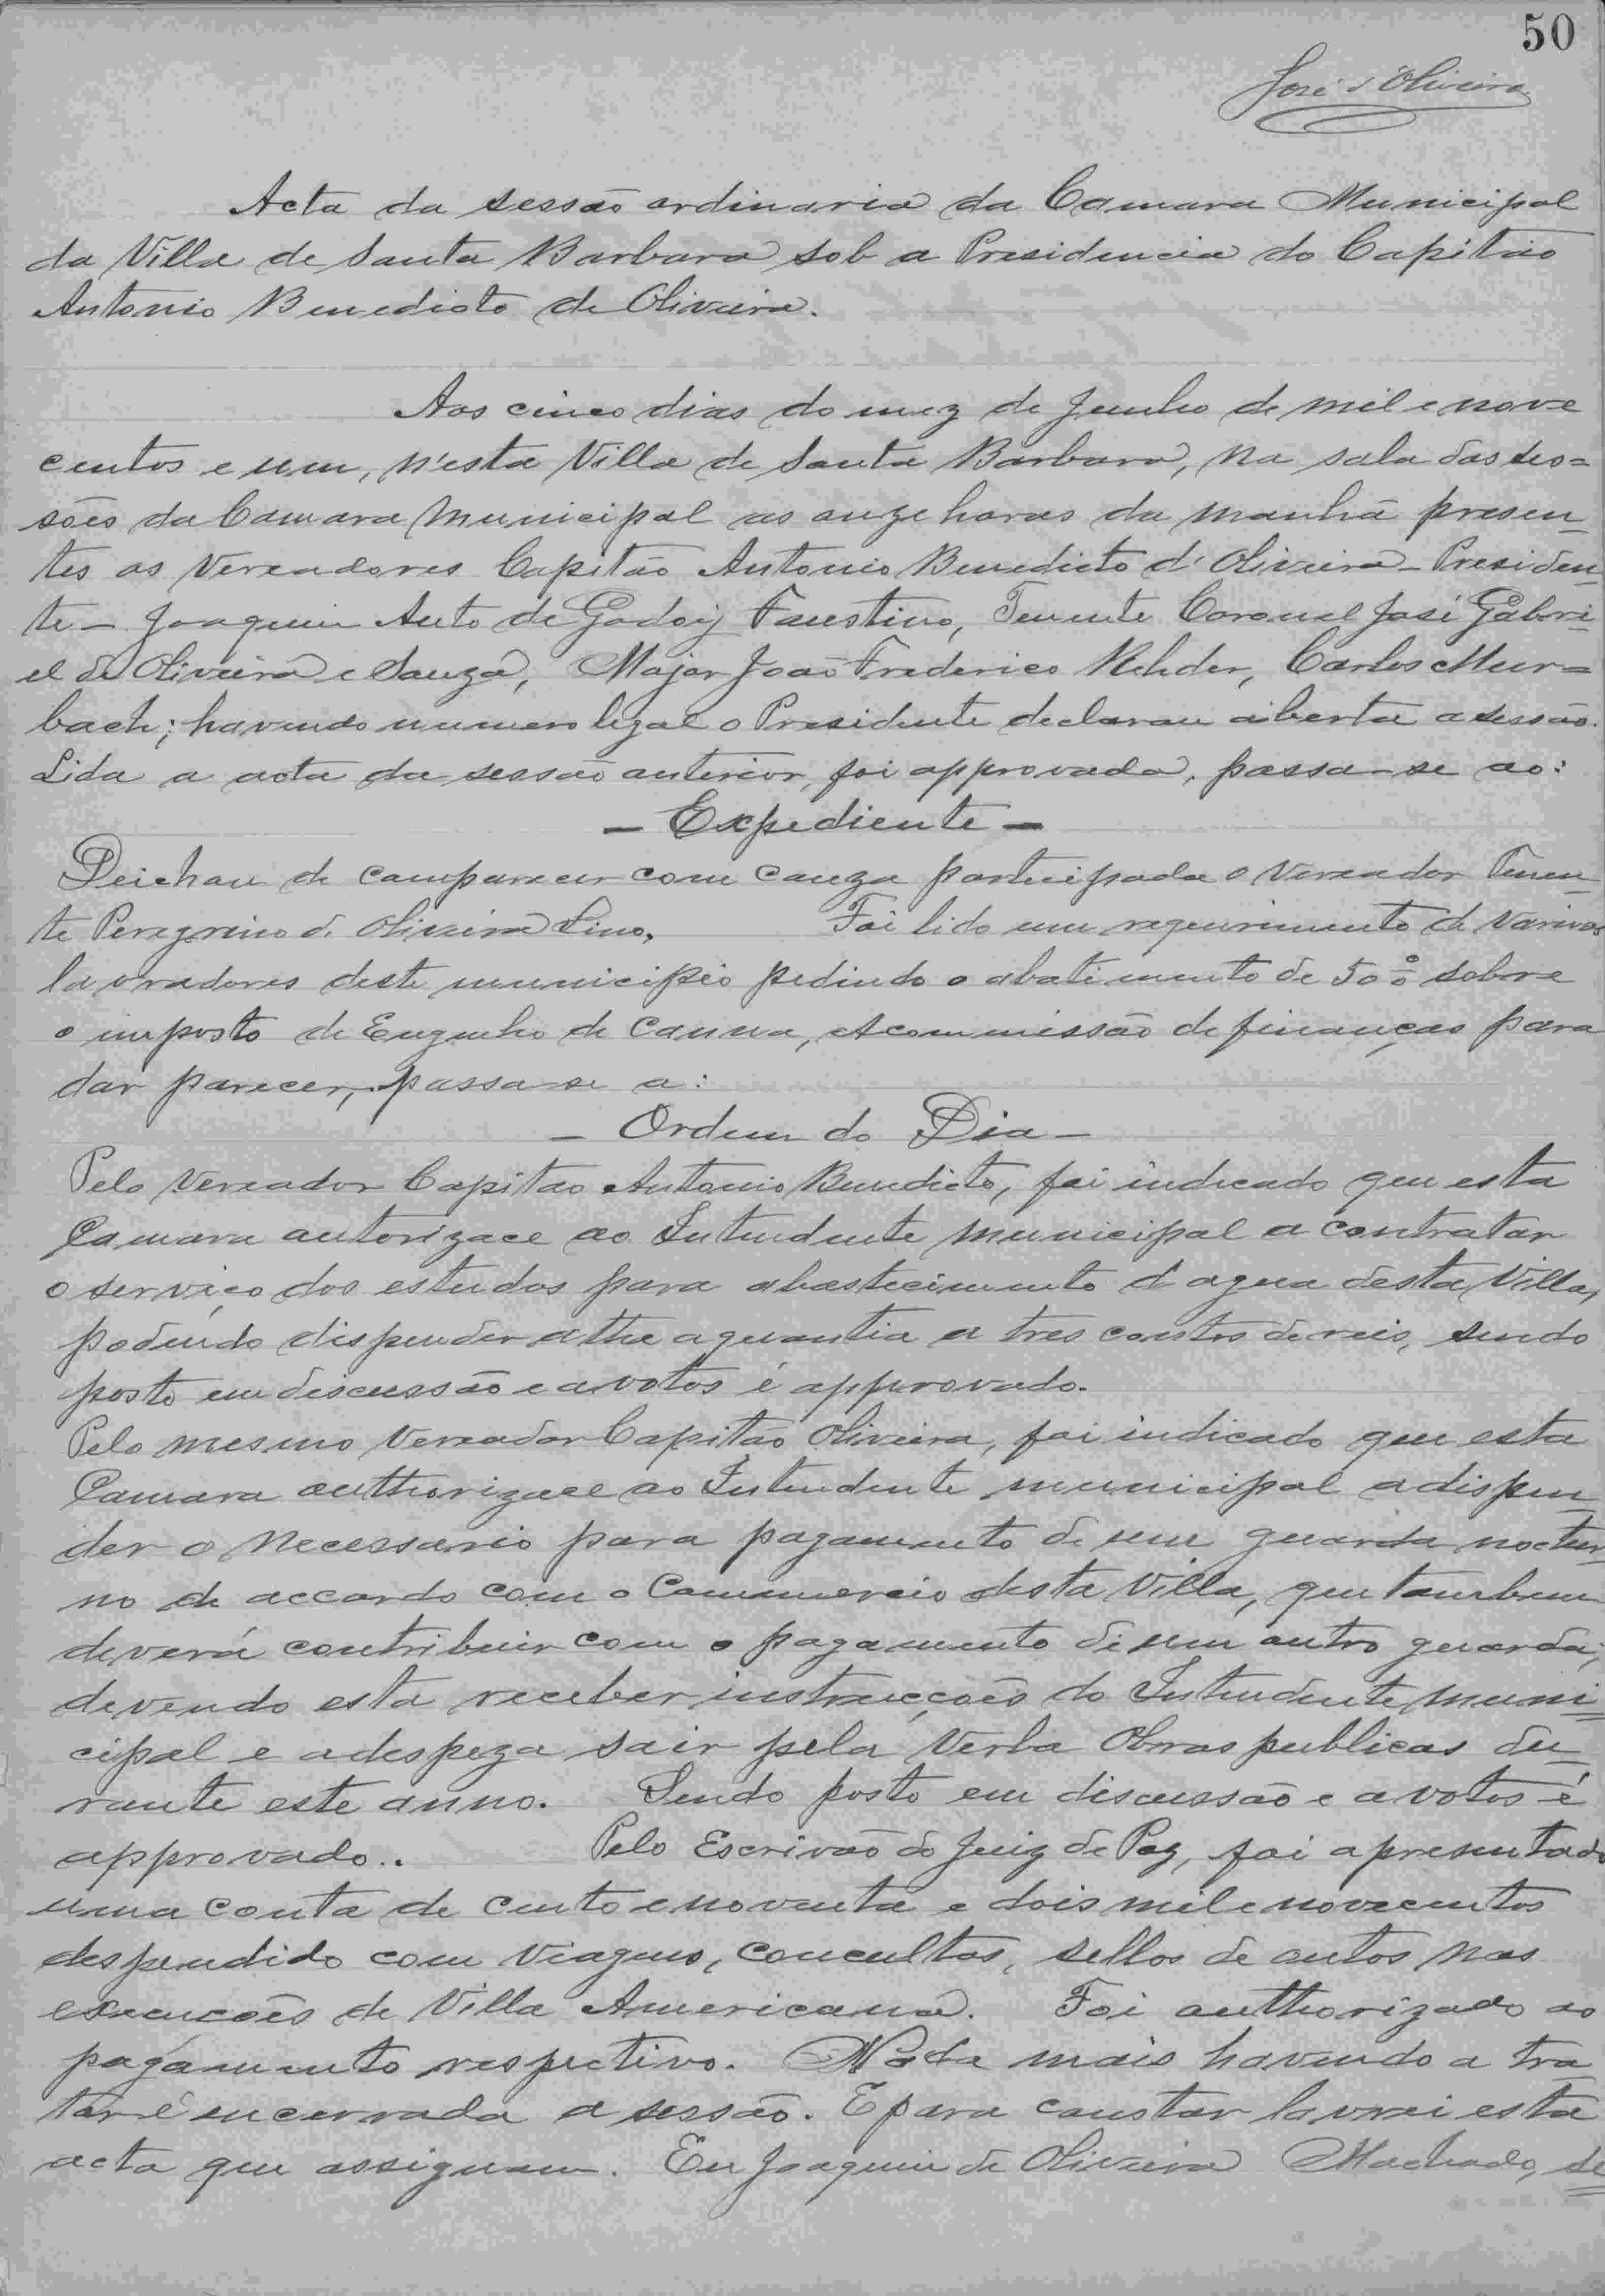 50
José d'Oliveira
Acta da sessão ordinaria da Camara Municipal
da Villa de Santa Barbara sob a Presidencia do Capitão
Antonio Benedicto de Oliveira.
Aos cinco dias do mez de Junho de mil e nove
centos e um, n'esta Villa de Santa Barbara, na sala das ses=
sões da Camara Municipal as onze horas da manhã presen_
tes os Vereadores Capitão Antonio Benedicto d'Oliveira_Presiden_
te_ Joaquim Anto de Godoy Faustino, Tenente Coronel José Gabri_
el de Oliveira e Souza, Major João Frederico Rehder, Carlos Mur=
bach; havendo numero legal o Presidente declarou aberta a sessão.
Lida a acta da sessão anterior, foi approvada, passa-se ao:
_ Expediente _
Deichou de comparecer com cauza participada o Vereador Tenen_
te Peregrino d. Oliveira Lino, Foi lido um requerimento de varios
lavradores deste municipio pedindo o abatimento de 50% sobre
o imposto de Engenho de Canna, A commissão de finanças para
dar parecer, passa-se a:
_ Ordem do Dia _
Pelo Vereador Capitão Antonio Benedicto, foi indicado que esta
Camara autorizace ao Intendente municipal a contratar
o serviço dos estudos para abastecimento d'agua desta Villa,
podendo dispender athe a quantia a tres contos de reis, sendo
posto em discussão e a votos é approvado.
Pelo mesmo Vereador Capitão Oliveira, foi indicado que esta
Camara authorizace ao Intendente municipal a dispen_
der o necessario para pagamento de um guarda noctur_
no de accordo com o Commercio desta Villa, que tambem
deverá contribuir com o pagamento de um outro guarda,
devendo esta receber instrucções do Intendente muni_
cipal e a despeza sair pela Verba Obras publicas du_
rante este anno. Sendo posto em discussão e a votos é
approvado.. Pelo Escrivão do Juiz de Paz, foi apresentado
uma conta de cento e noventa e dois mil e novecentos
despendido com viagens, concultas, sellos de autos nas
execucões de Villa Americana. Foi authorizado ao
pagamento respectivo. Nada mais havendo a tra_
tar é encerrada a sessão. E para constar lavrei esta
acta que assignam. Eu Joaquim de Oliveira Machado, se